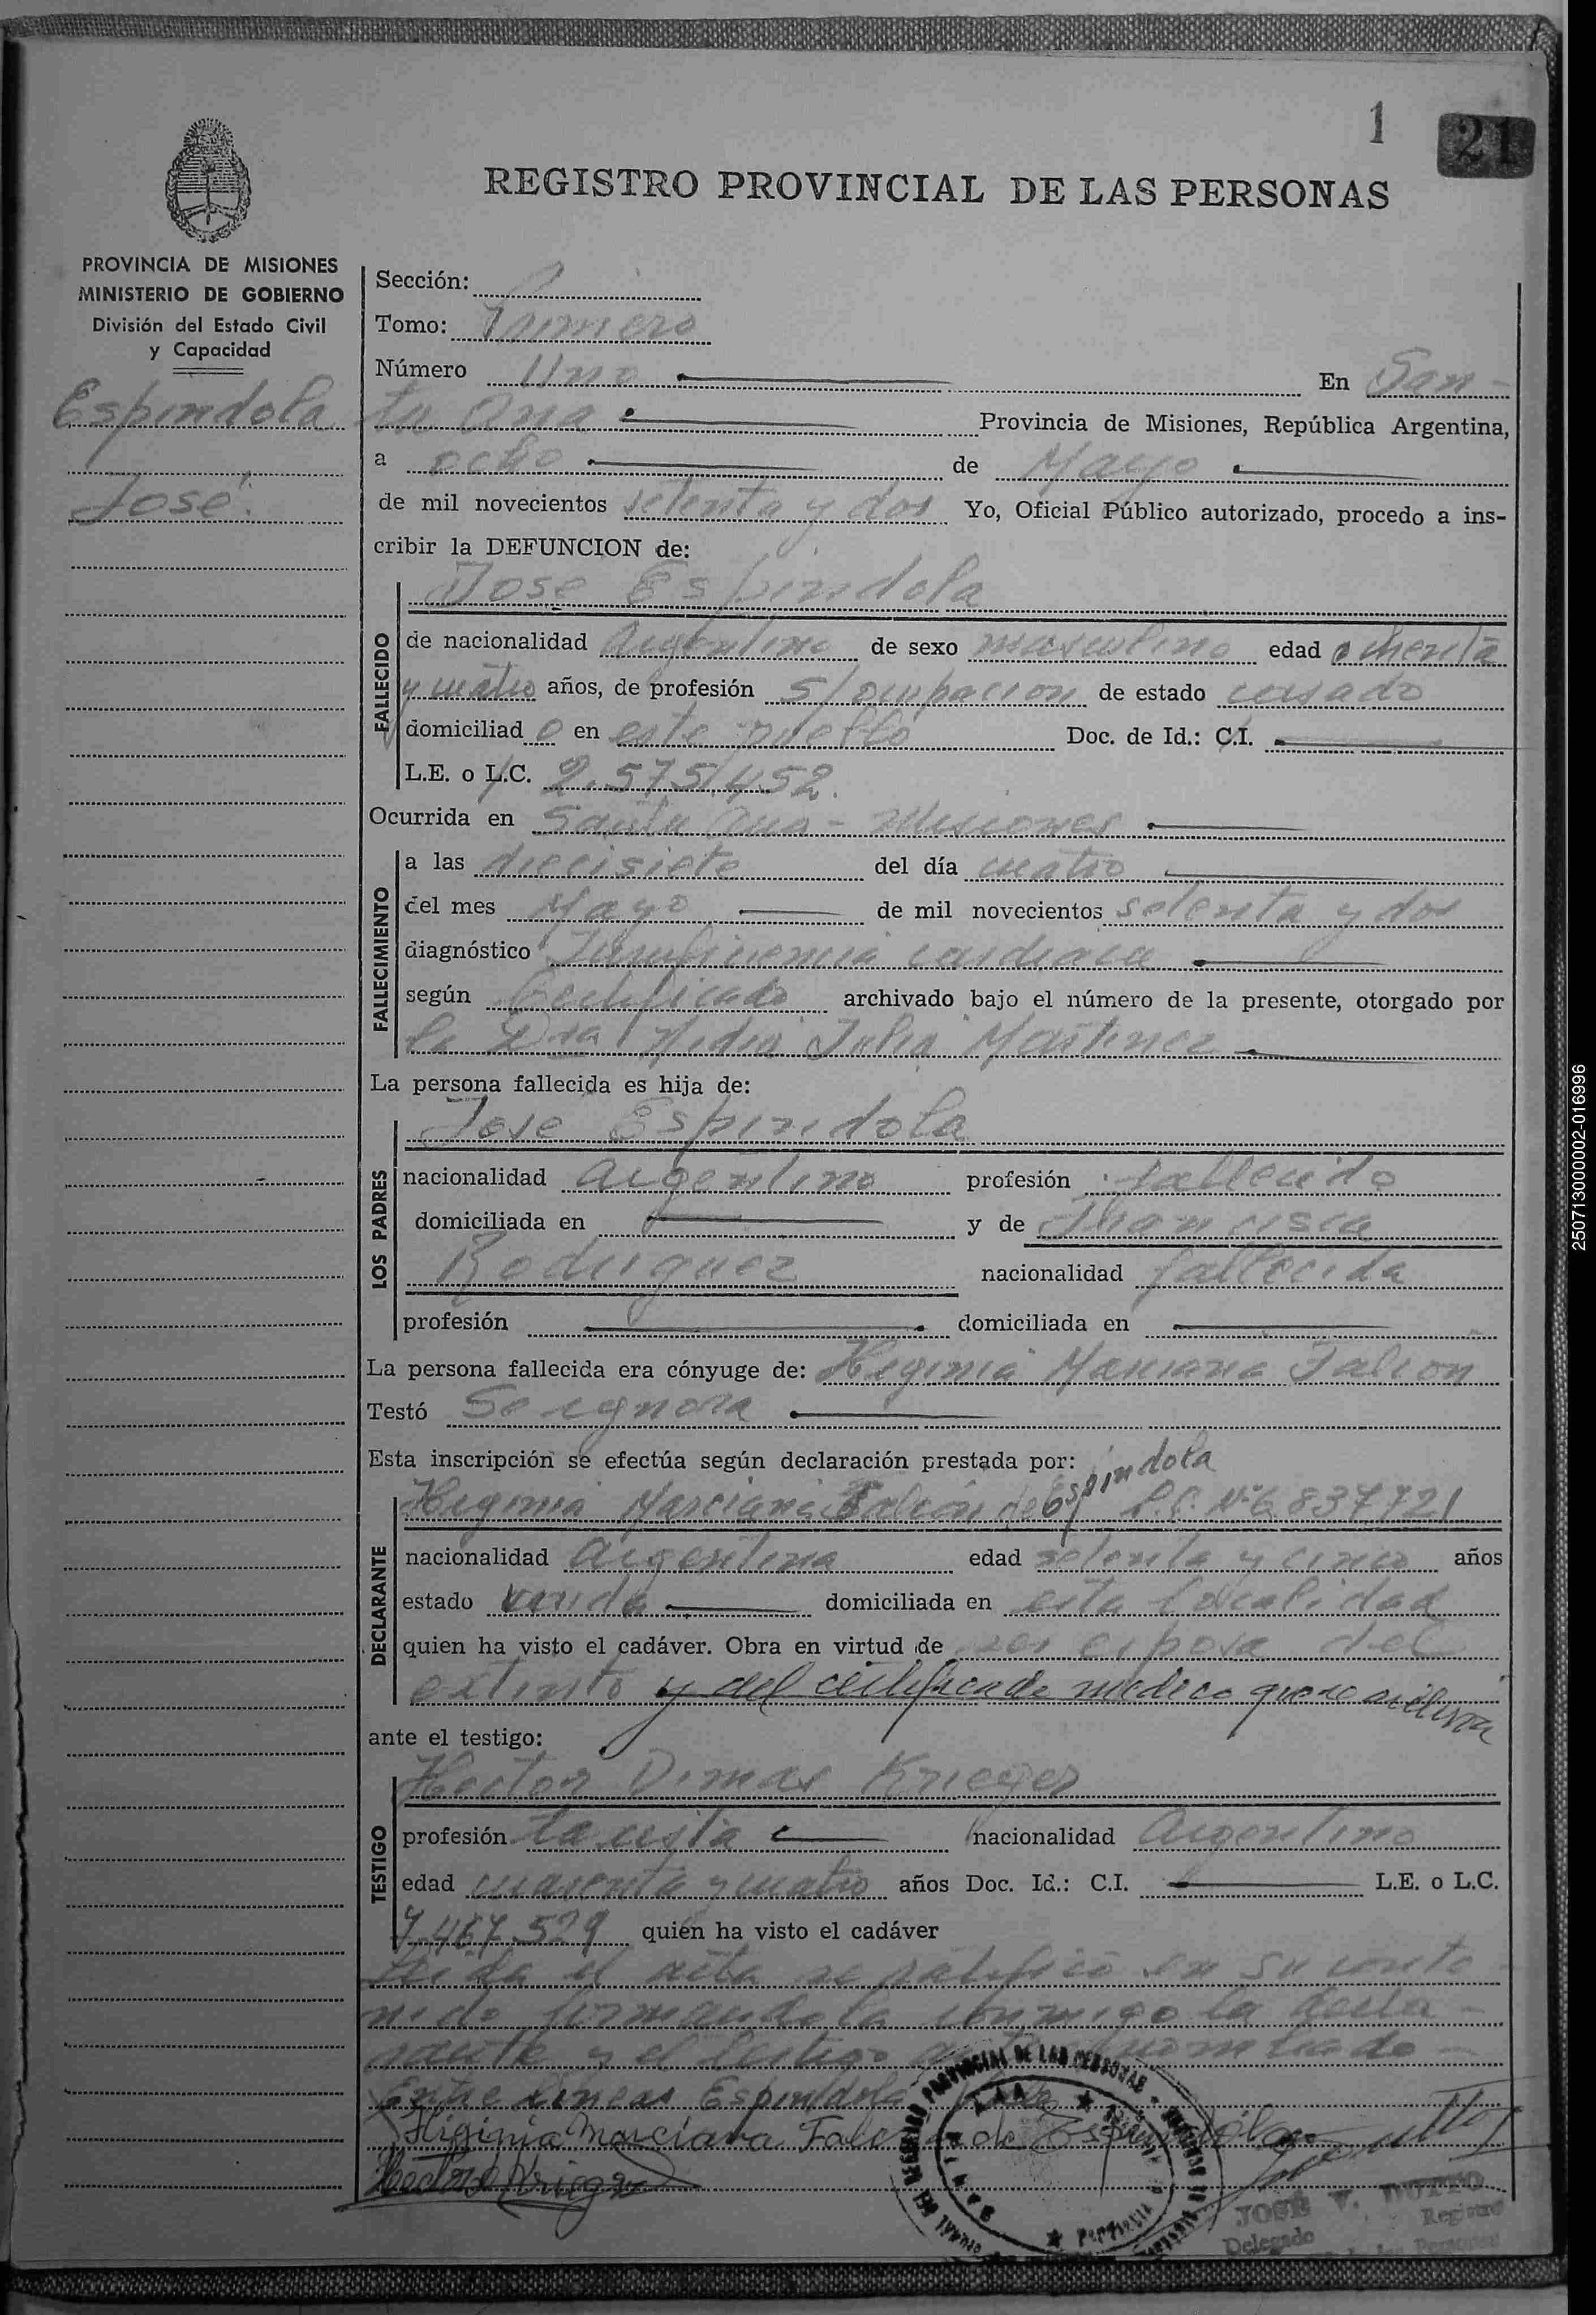 1 21
REGISTRO PROVINCIAL DE LAS PERSONAS
PROVINCIA DE MISIONES
MINISTERIO DE GOBIERNO
División del Estado Civil
y Capacidad
Espindola
José.
Sección:
Tomo: Primero
Número Uno En San-
ta Ana Provincia de Misiones, República Argentina,
a ocho de Mayo
de mil novecientos setenta y dos Yo, Oficial Público autorizado, procedo a ins-
cribir la DEFUNCION de:
José Espindola
FALLECIDO
de nacionalidad Argentino de sexo masculino edad ochenta
y cuatro años, de profesión s/ocupacion de estado casado
domiciliado en este pueblo Doc. de Id.: C.I.
L.E. o L.C. 2.575.452.
Ocurrida en Santa Ana - Misiones
FALLECIMIENTO
a las diecisiete del día cuatro
del mes Mayo de mil novecientos setenta y dos
diagnóstico Insuficiencia cardiaca
según Certificado archivado bajo el número de la presente, otorgado por
la Dra Julia Martinez
La persona fallecida es hija de:
José Espindola
LOS PADRES
nacionalidad Argentino profesión fallecido
domiciliada en y de Francisca
Rodriguez nacionalidad fallecida
profesión domiciliada en
La persona fallecida era cónyuge de: Higinia Marciana Falcon
Testó Se ignora
Esta inscripción se efectúa según declaración prestada por:
Higinia Marciana Falcón de Espindola L.C. Nº 6.837.721
DECLARANTE
nacionalidad Argentina edad setenta y cinco años
estado viuda domiciliada en esta localidad
quien ha visto el cadáver. Obra en virtud de ser esposa del
extinto y del certificado medico que se archiva
ante el testigo:
Hector Dimas Krieger
TESTIGO
profesión taxista nacionalidad Argentino
edad cuarenta y cuatro años Doc. Id.: C.I. L.E. o L.C.
7.467.529 quien ha visto el cadáver
Leida el acta se ratificó en su conte-
nido firmandola conmigo la decla-
rante y el testigo nombrado-
Entre lineas Espindola Vale
Higinia Marciana Falcon de Espindola
Hector D Krieger
JOSÉ V. DUTTO
Delegado Registro
de las Personas
250713000002-016996